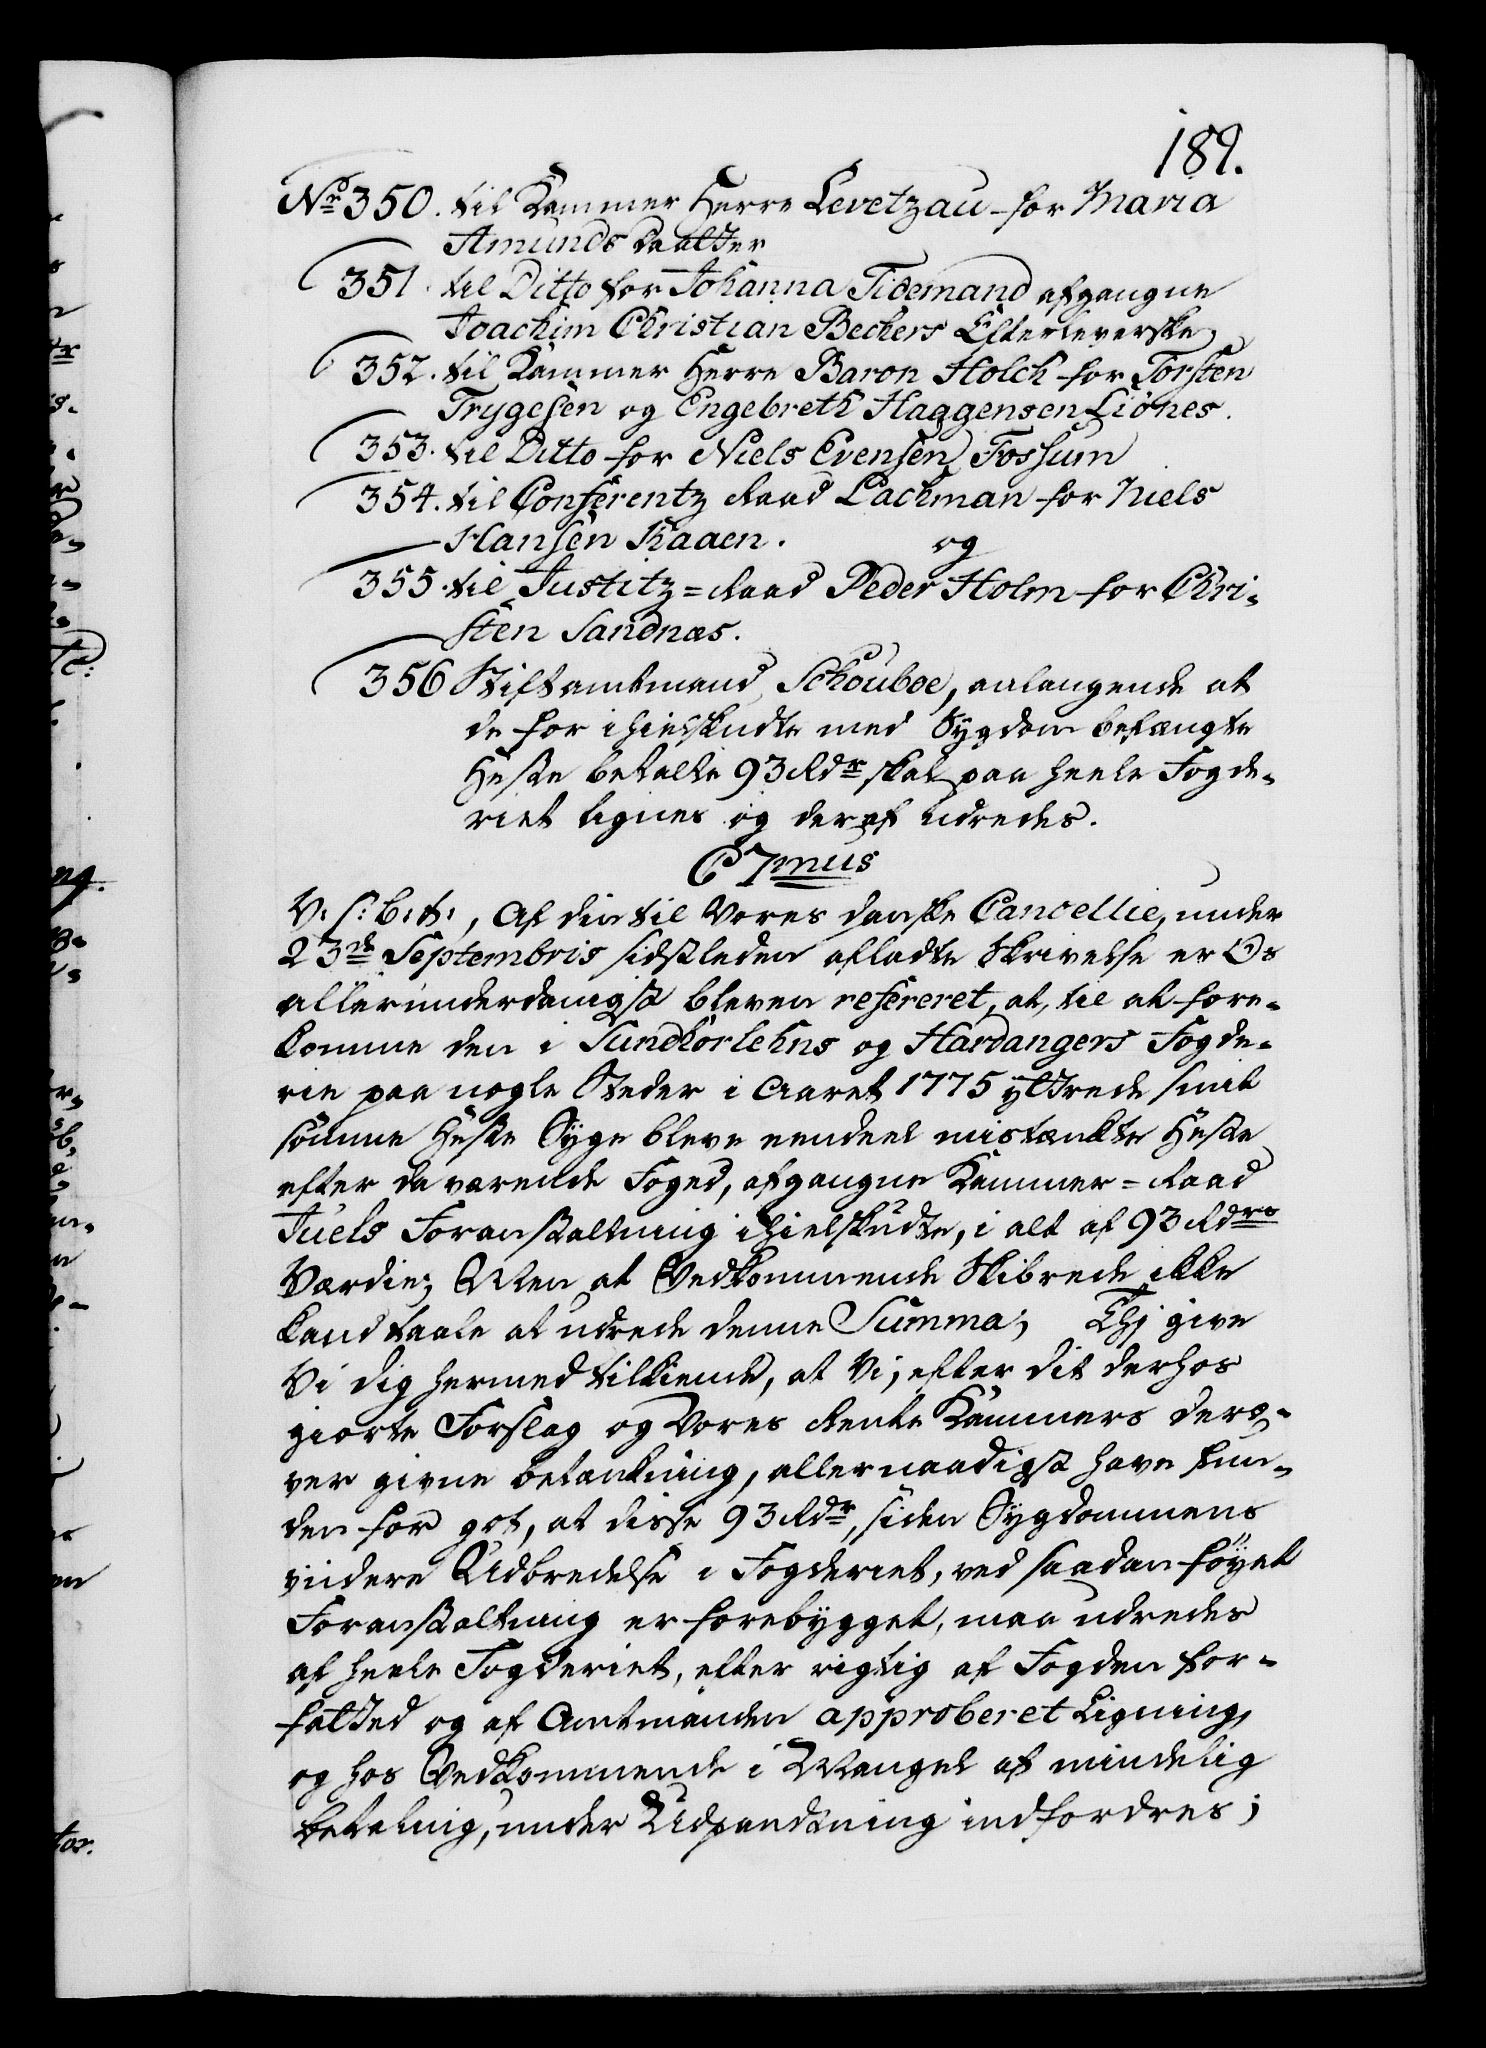 189.
No 350. til Kammer Herre Levetzau for Maria
Amunds daatter
351. til Ditto for Johanna Tidemand afgangne
Joachim Christian Beckers Efterleverske
352. til Kammer Herre Baron Holck for Torsten
Trygesen og Engebreth Haggensen Liönes.
353. til Ditto for Niels Evensen Fossum
354. til Conferentz Raad Lachman for Niels
Hansen Kaaen. og
355. til Justitz=Raad Peder Holm for Chri-
sten Sandnæs.
356 Stiftamtmand Schouboe, anlangende at
de for ihielskudte med Sygdom befængte
Heste betalte 93 Rdr skal paa heele Fogde-
riet lignes og deraf udredes.
C7mus
V: S: B: t:, Af din til Vores danske Cancellie, under
23de Septembris sidstleden afladte Skrivelse er Os
allerunderdanigst bleven refereret, at, til at fore-
komme den i Sundhorlehns og Hardangers Fogde-
rie paa nogle Steder i Aaret 1775 yttrede smit-
somme Heste Syge bleve eendeel mistænkte Heste
efter da værende Foged, afgangne Kammer=Raad
Juels Foranstaltning ihielskudte, i alt af 93 Rdrs
Værdie; Men at Vedkommende Skibrede ikke
kand taale at udrede denne Summa; Thj give
Vi dig hermed tilkiende, at Vi, efter dit derhos
giorte Forslag og Vores Rente Kammers dero-
ver givne betænkning, allernaadigst have fun-
den for got, at disse 93 Rdr, siden Sygdommens
viidere Udbredelse i Fogderiet, ved saadan föyet
Foranstaltning er forebygget, maa udredes
af heele Fogderiet, efter rigtig af Fogden for-
fatted og af Amtmanden approberet Ligning,
og hos Vedkommende i Mangel af mindelig
betaling, under Udpandtning indfordres;